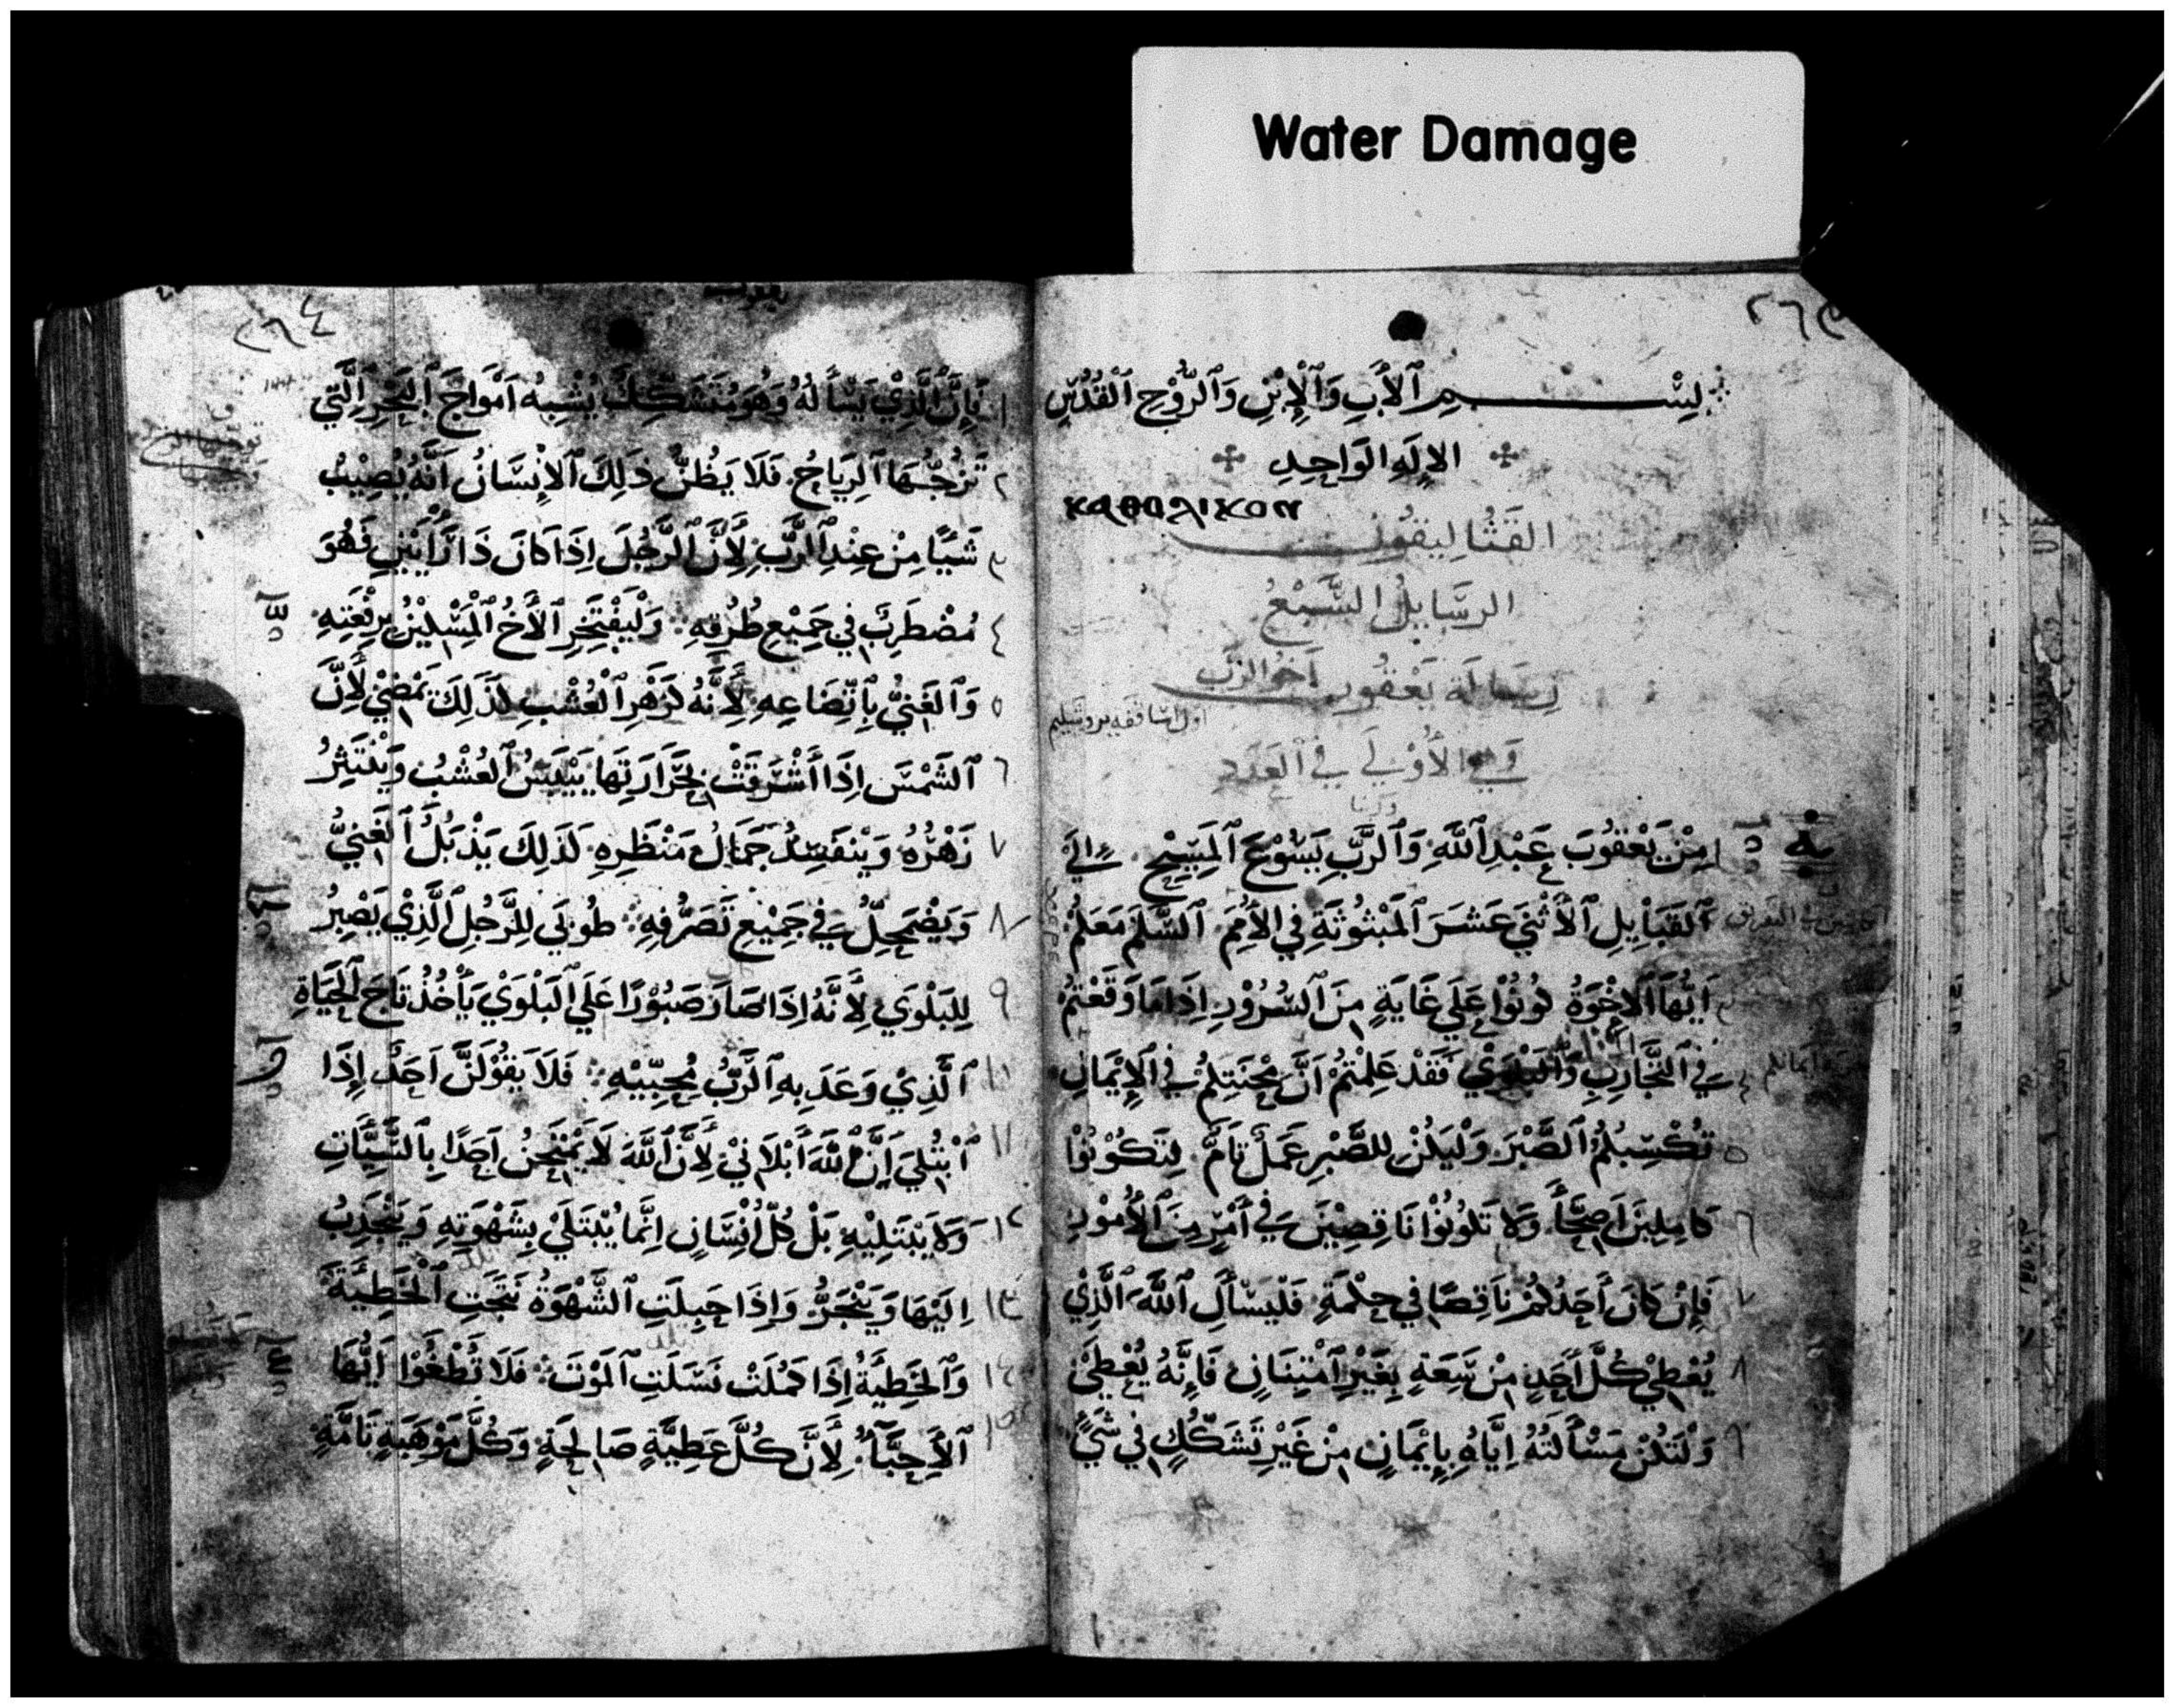 Water Damage
بِسْمِ ٱلْأَبِ وَٱلْإِبْنِ وَٱلرُّوْحِ ٱلْقُدُسِ
الإلَهِ الوَاحِدِ
ⲕⲁⲑⲟⲗⲓⲕⲟⲛ
القَثَالِيقُون
الرسَايلُ السَّبعُ
رِسَالَة يَعْقُوب اَخو الرَب
اول اساقفه يروشليم
وَهي الأُوْلَي فِي العَدَدِ
مِنْ يَعْقُوبَ عَبْدِ ٱللَّهِ وَٱلرَّبِ يَسُوْعَ ٱلْمَسِيْحِ إلَى
ٱلْقَبَايِلِ ٱلْأثْنَيْ عَشَرَ ٱلْمَبْثُوْثَةِ فِي الأُمَمِ ٱلسَّلَم مَعَكُمْ
اَيُّهَا ٱلإخْوَةُ كُونُوْا عَلَي غَايَةٍ مِنَ ٱلسُّرُوْرِ اِذَا مَا وَقَعْتُمْ
فِي ٱلتَّجَارِبِ وَٱلْبَلْوَيْ فَقَدْ عَلِمْتُمْ اَنَّ مِحْنَتَكُمْ فِي ٱلإيْمَانِ
تُكْسِبُكُمُ ٱلصَّبْرَ وَلْيَكُنْ للصَّبْرِ عَمَلٌ تَامٌّ لِتَكُوْنُوْا
كَامِلِينَ اَصِحَّآً وَلَا تَكُونُوْا نَاقِصِيْنَ فِي أَمْرٍ مِنَ ٱلأُمُوْرِ
فَإِنْ كَانَ أَحَدُكُمْ نَاقِصًا فِي حِكْمَةٍ فَلْيَسْأَلِ ٱللَّهَ ٱلَّذِيْ
يُعْطِيْ كُلَّ أَحَدٍ مِنْ سَعَةٍ بِغَيْرِ ٱمْتِنَانٍ فَإِنَّهُ يُعْطِيَ
وَلْتَكُنْ مَسْأَلَتُهُ اِيَّاهُ بِإِيْمَانٍ مِنْ غَيْرِ تَشَكُّكٍ فِي شَيٍ
٢٦٤
فَإِنَّ ٱلَّذِيْ يَسْأَلُهُ وَهُوَ مُتَشَكِّكٌ يُشْبِهُ اَمْوَاجَ ٱلْبَحْرِ ٱلَّتِي
٢ تَزُجُّهَا ٱلرِيَاحُ فَلَا يَظُنُّ ذلِكَ ٱلإنْسَانُ اَنَّهُ يُصِيْبُ
٣ شَيًا مِنْ عِنْدِ ٱلرَّبِ لِأَنَّ ٱلرَّجُلَ اِذَا كَانَ ذَا رَأْيَيْنِ فَهُوَ
٤ مُضْطَرِبٌ فِي جَمِيْعِ طُرُقِهِ وَلْيَفْتَخِرِ ٱلأَخُ ٱلْمِسْكِيْنُ بِرِفْعَتِهِ
٥ وَٱلغَنِيُّ بِاتِّضَاعِهِ لِأَنَّهُ كَزَهْرِ ٱلْعُشْبِ كَذَلِكَ يَمْضِيْ لِأَنَّ
٦ ٱلشَمْسَ اِذَا أَشْرَقَتْ بِحَرَارَتِهَا يَيْبَسُ ٱلعُشْبُ وَيَنْتَثِرُ
٧ زَهْرُهُ وَيَنْفَسِدُ جَمَالُ مَنْظَرِهِ كَذَلِكَ يَذْبُلُ ٱلْغَنِيُّ
٨ وَيَضْمَحِلُّ فِي جَمِيْعِ تَصَرُّفِهِ طُوبَي لِلرَّجُلِ ٱلَّذِيْ يَصْبِرُ
٩ لِلبَلْوَي لِأَنَّهُ اِذَا صَارَ صَبُوْرًا عَلَي ٱلبَلْوَيْ يَأْخُذُ تَاجَ ٱلْحَيَاةِ
١٠ ٱلَّذِيْ وَعَدَ بِهِ ٱلرَّبُّ مُحِبِّيْهِ فَلَا يَقُوْلَنَّ اَحَدٌ إِذَا
١١ ٱبْتُلِيَ اِنَّ ٱللَّهَ أَبْلَانِيْ لِأَنَّ ٱللَّهَ لَا يَمْتَحِنُ اَحَدًا بِٱلسَّيِّاتِ
١٢ وَلَا يَبْتَلِيْهِ بَلْ كُلُّ اِنْسَانٍ اِنَّمَا يُبْتَلَيْ بِشَهْوَتِهِ وَيَنْجَذِبُ
١٣ اِلَيْهَا وَيَنْجَرُّ وَإِذَا حَبِلَتِ ٱلشَّهْوَةُ نَتَجَتِ ٱلْخَطِيَّةَ
١٤ وَٱلخَطِيَّةُ إِذَا كَمُلَتْ نَسَلَتِ ٱلمَوْتَ فَلَا تُطْغَوْا اَيُّهَا
١٥ ٱلأَحِبَّآءُ لِأَنَّ كُلَّ عَطِيَّةٍ صَالِحَةٍ وَكُلَّ مَوْهَبَةٍ تَامَّةٍ